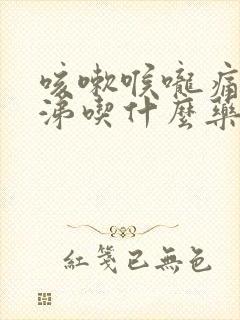 咳嗽喉嚨痛
涕喫什麼藥
紅箋已無色